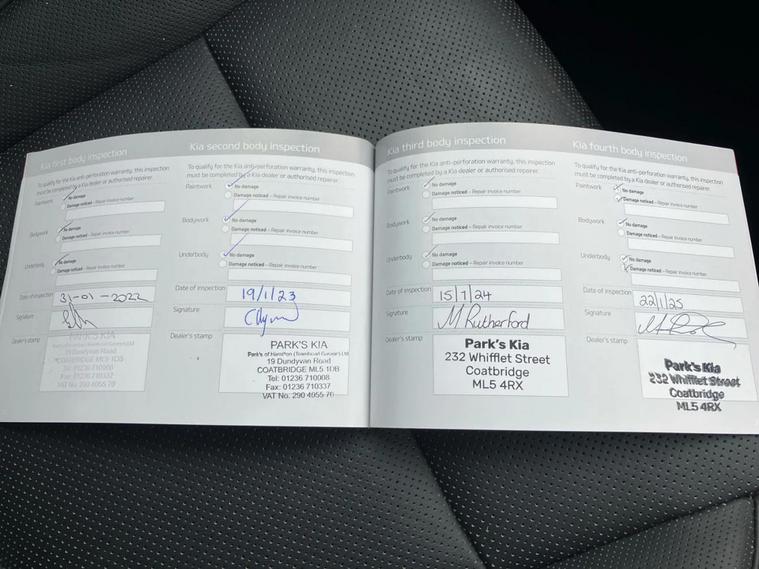 Kia first body inspection
To qualify for the Kia anti-perforation warranty, this inspection
must be completed by a Kia dealer or authorised repairer.
Paintwork
No damage
Damage noticed – Repair invoice number
Bodywork
No damage
Damage noticed – Repair invoice number
Underbody
No damage
Damage noticed – Repair invoice number
Date of inspection 31-01-2022
Signature
Dealer's stamp
PARK'S KIA
19 Dundyvan Road
COATBRIDGE ML5 1DB
Tel: 01236 710008
Fax: 01236 710337
VAT No: 290 4055 76
Kia second body inspection
To qualify for the Kia anti-perforation warranty, this inspection
must be completed by a Kia dealer or authorised repairer.
Paintwork
No damage
Damage noticed – Repair invoice number
Bodywork
No damage
Damage noticed – Repair invoice number
Underbody
No damage
Damage noticed – Repair invoice number
Date of inspection 19/1/23
Signature
Dealer's stamp
PARK'S KIA
Park's of Hamilton (Townhead Garage) Ltd
19 Dundyvan Road
COATBRIDGE ML5 1DB
Tel: 01236 710008
Fax: 01236 710337
VAT No: 290 4055 76
Kia third body inspection
To qualify for the Kia anti-perforation warranty, this inspection
must be completed by a Kia dealer or authorised repairer.
Paintwork
No damage
Damage noticed – Repair invoice number
Bodywork
No damage
Damage noticed – Repair invoice number
Underbody
No damage
Damage noticed – Repair invoice number
Date of inspection 15/1/24
Signature M Rutherford
Dealer's stamp
Park's Kia
232 Whifflet Street
Coatbridge
ML5 4RX
Kia fourth body inspection
To qualify for the Kia anti-perforation warranty, this inspection
must be completed by a Kia dealer or authorised repairer.
Paintwork
No damage
Damage noticed – Repair invoice number
Bodywork
No damage
Damage noticed – Repair invoice number
Underbody
No damage
Damage noticed – Repair invoice number
Date of inspection 22/1/25
Signature
Dealer's stamp
Park's Kia
232 Whifflet Street
Coatbridge
ML5 4RX